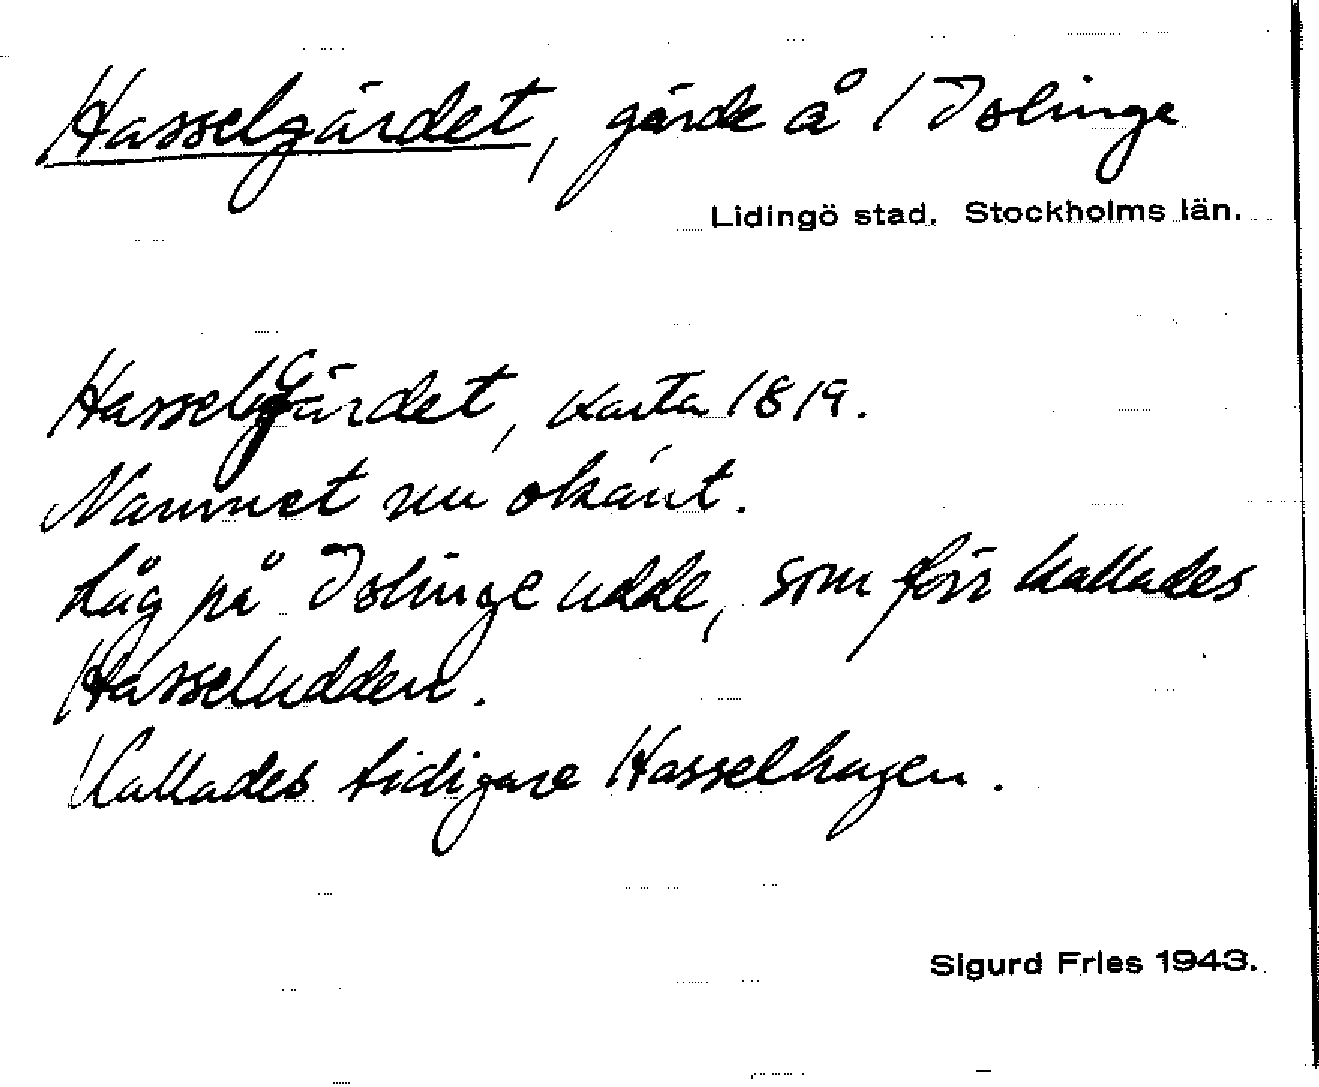 Hasselgärdet, gärde å / Islinge
Lidingö stad. Stockholms län.
HasselGärdet, karta 1819.
Namnet nu okänt.
Låg på Islinge udde, som förr kallades
Hasseludden.
Kallades tidigare Hasselhagen.
Sigurd Fries 1943.